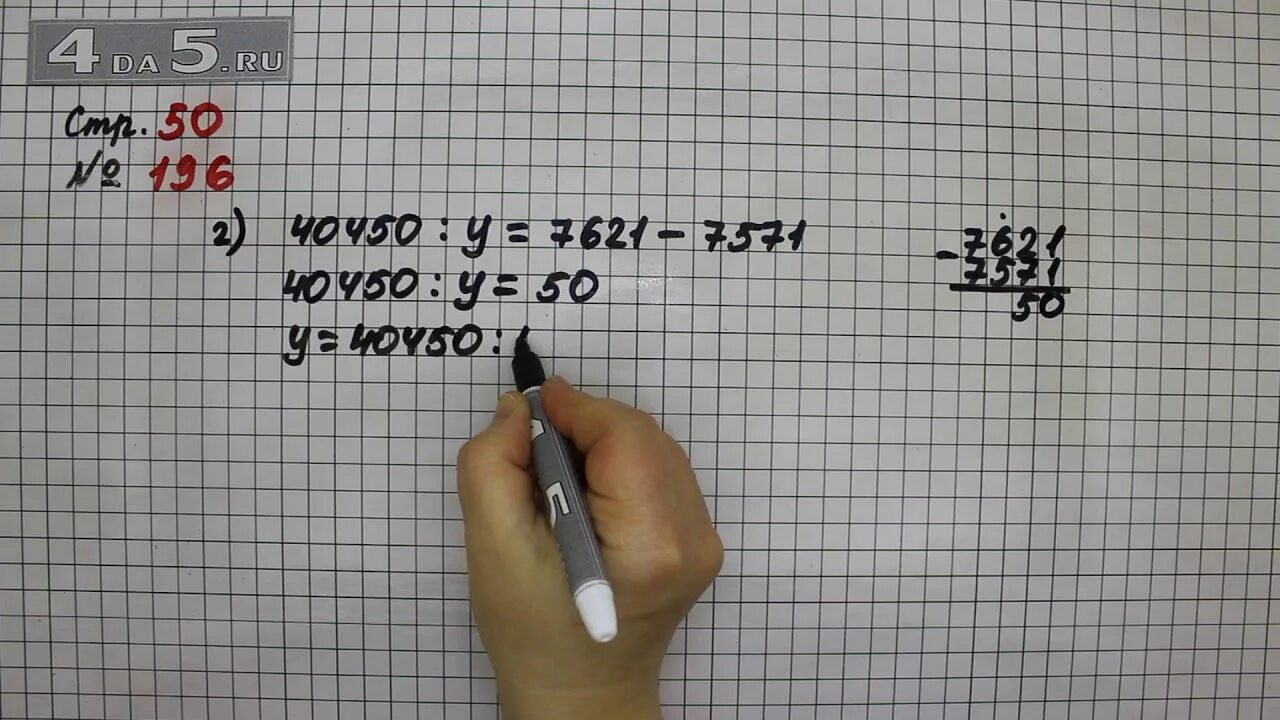 4 DA 5.RU
Стр. 50
№ 196
2) 40450 : у = 7621 - 7571
40450 : у = 50
у = 40450 :
- 7621
7571
50
5